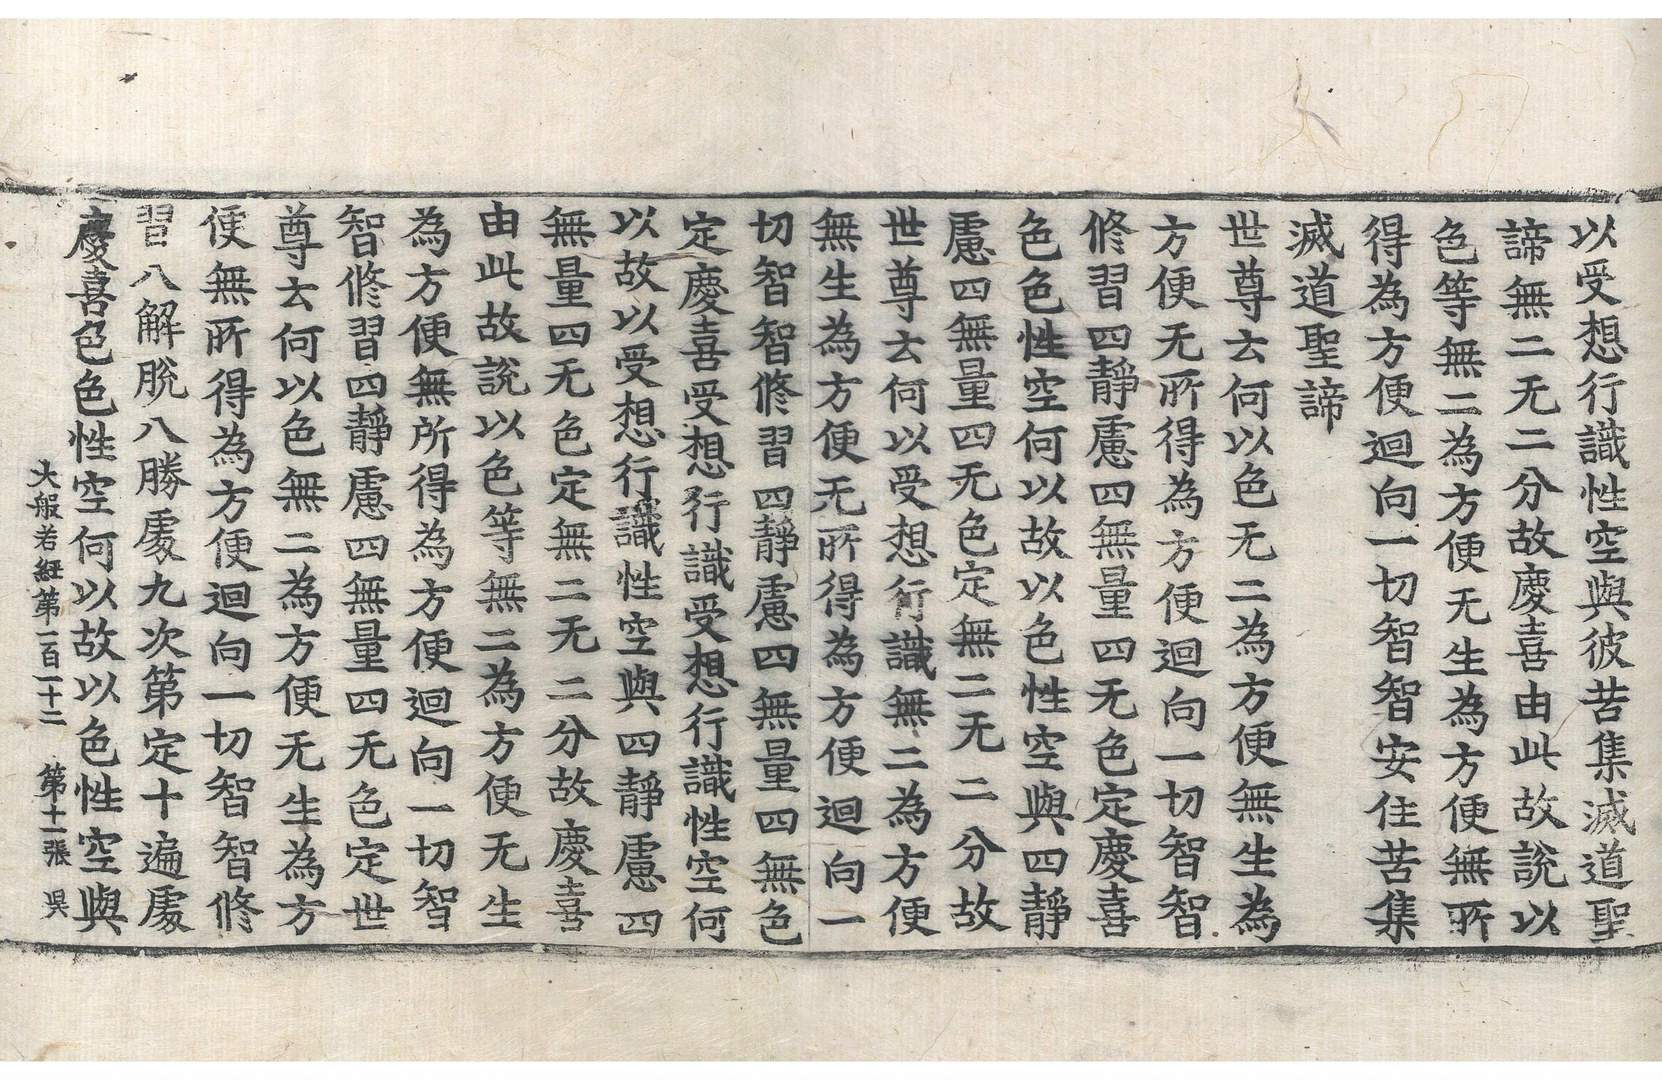 以受想行識性空與彼苦集滅道聖
諦無二无二分故慶喜由此故說以
色等無二為方便无生為方便無所
得為方便迴向一切智智安住苦集
滅道聖諦
世尊云何以色无二為方便無生為
方便无所得為方便迴向一切智智
修習四靜慮四無量四无色定慶喜
色色性空何以故以色性空與四靜
慮四無量四无色定無二无二分故
世尊云何以受想行識無二為方便
無生為方便无所得為方便迴向一
切智智修習四靜慮四無量四無色
定慶喜受想行識受想行識性空何
以故以受想行識性空與四靜慮四
無量四无色定無二无二分故慶喜
由此故說以色等無二為方便无生
為方便無所得為方便迴向一切智
智修習四靜慮四無量四无色定世
尊云何以色無二為方便无生為方
便無所得為方便迴向一切智智修
習八解脫八勝處九次第定十遍處
慶喜色色性空何以故以色性空與
大般若経第一百一十二 第十一張 吳